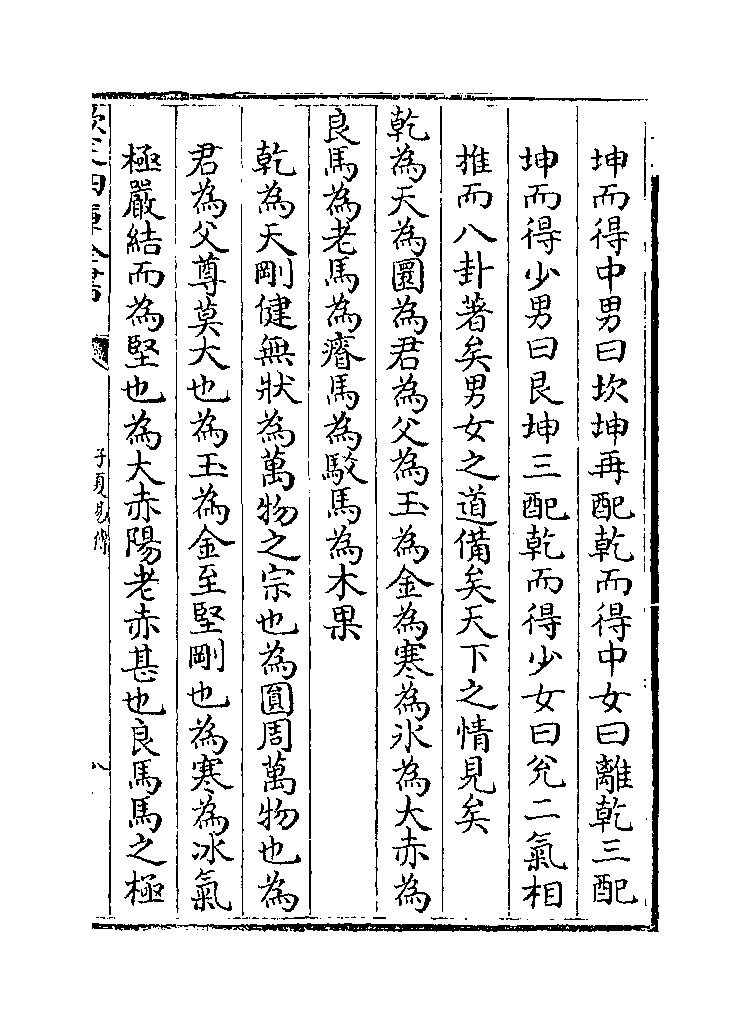 坤而得中男曰坎坤再配乾而得中女曰離乾三配
坤而得少男曰艮坤三配乾而得少女曰兌二氣相
推而八卦著矣男女之道備矣天下之情見矣
乾為天為圜為君為父為玉為金為寒為氷為大赤為
良馬為老馬為瘠馬為駁馬為木果
乾為天剛健無狀為萬物之宗也為圓周萬物也為
君為父尊莫大也為玉為金至堅剛也為寒為冰氣
極嚴結而為堅也為大赤陽老赤甚也良馬馬之極
子夏易傳
八